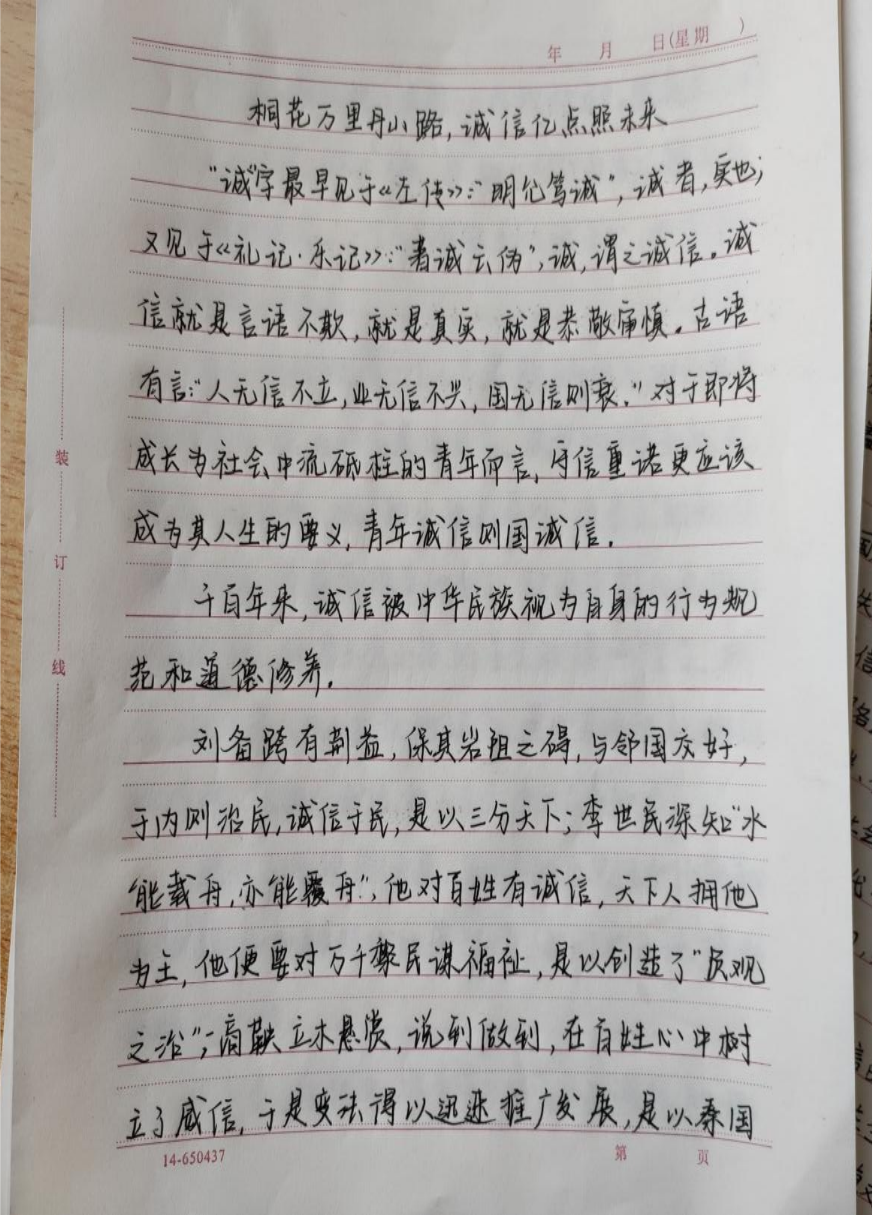 年 月 日(星期 )
桐花万里丹山路,诚信亿点照未来
"诚"字最早见于《左传》:"明允笃诚",诚者,实也;
又见于《礼记·乐记》:"著诚去伪",诚,谓之诚信。诚
信就是言语不欺,就是真实,就是恭敬审慎。古语
有言:"人无信不立,业无信不兴,国无信则衰。"对于即将
成长为社会中流砥柱的青年而言,守信重诺更应该
成为其人生的要义,青年诚信则国诚信。
千百年来,诚信被中华民族视为自身的行为规
范和道德修养。
刘备跨有荆益,保其岩阻之碍,与邻国交好,
于内则治民,诚信于民,是以三分天下;李世民深知"水
能载舟,亦能覆舟",他对百姓有诚信,天下人拥他
为主,他便要对万千黎民谋福祉,是以创造了"贞观
之治";商鞅立木悬赏,说到做到,在百姓心中树
立了威信,于是变法得以迅速推广发展,是以秦国
装
订
线
14-650437
第 页